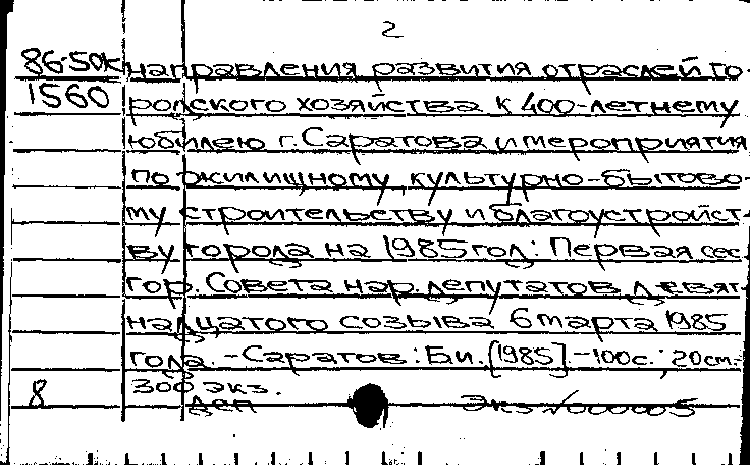 2
86-50к направления развития отраслей го-
1560 родского хозяйства к 400-летнему
юбилею г. Саратова и мероприятия
по жилищному, культурно-бытово-
му строительству и благоустройст-
ву города на 1985 год: Первая сес.
гор. Совета нар. депутатов девят-
надцатого созыва 6 марта 1985
года. - Саратов: Б.и. [1985] - 100с.; 20см.-
300 экз.
8 деп Экз №000005